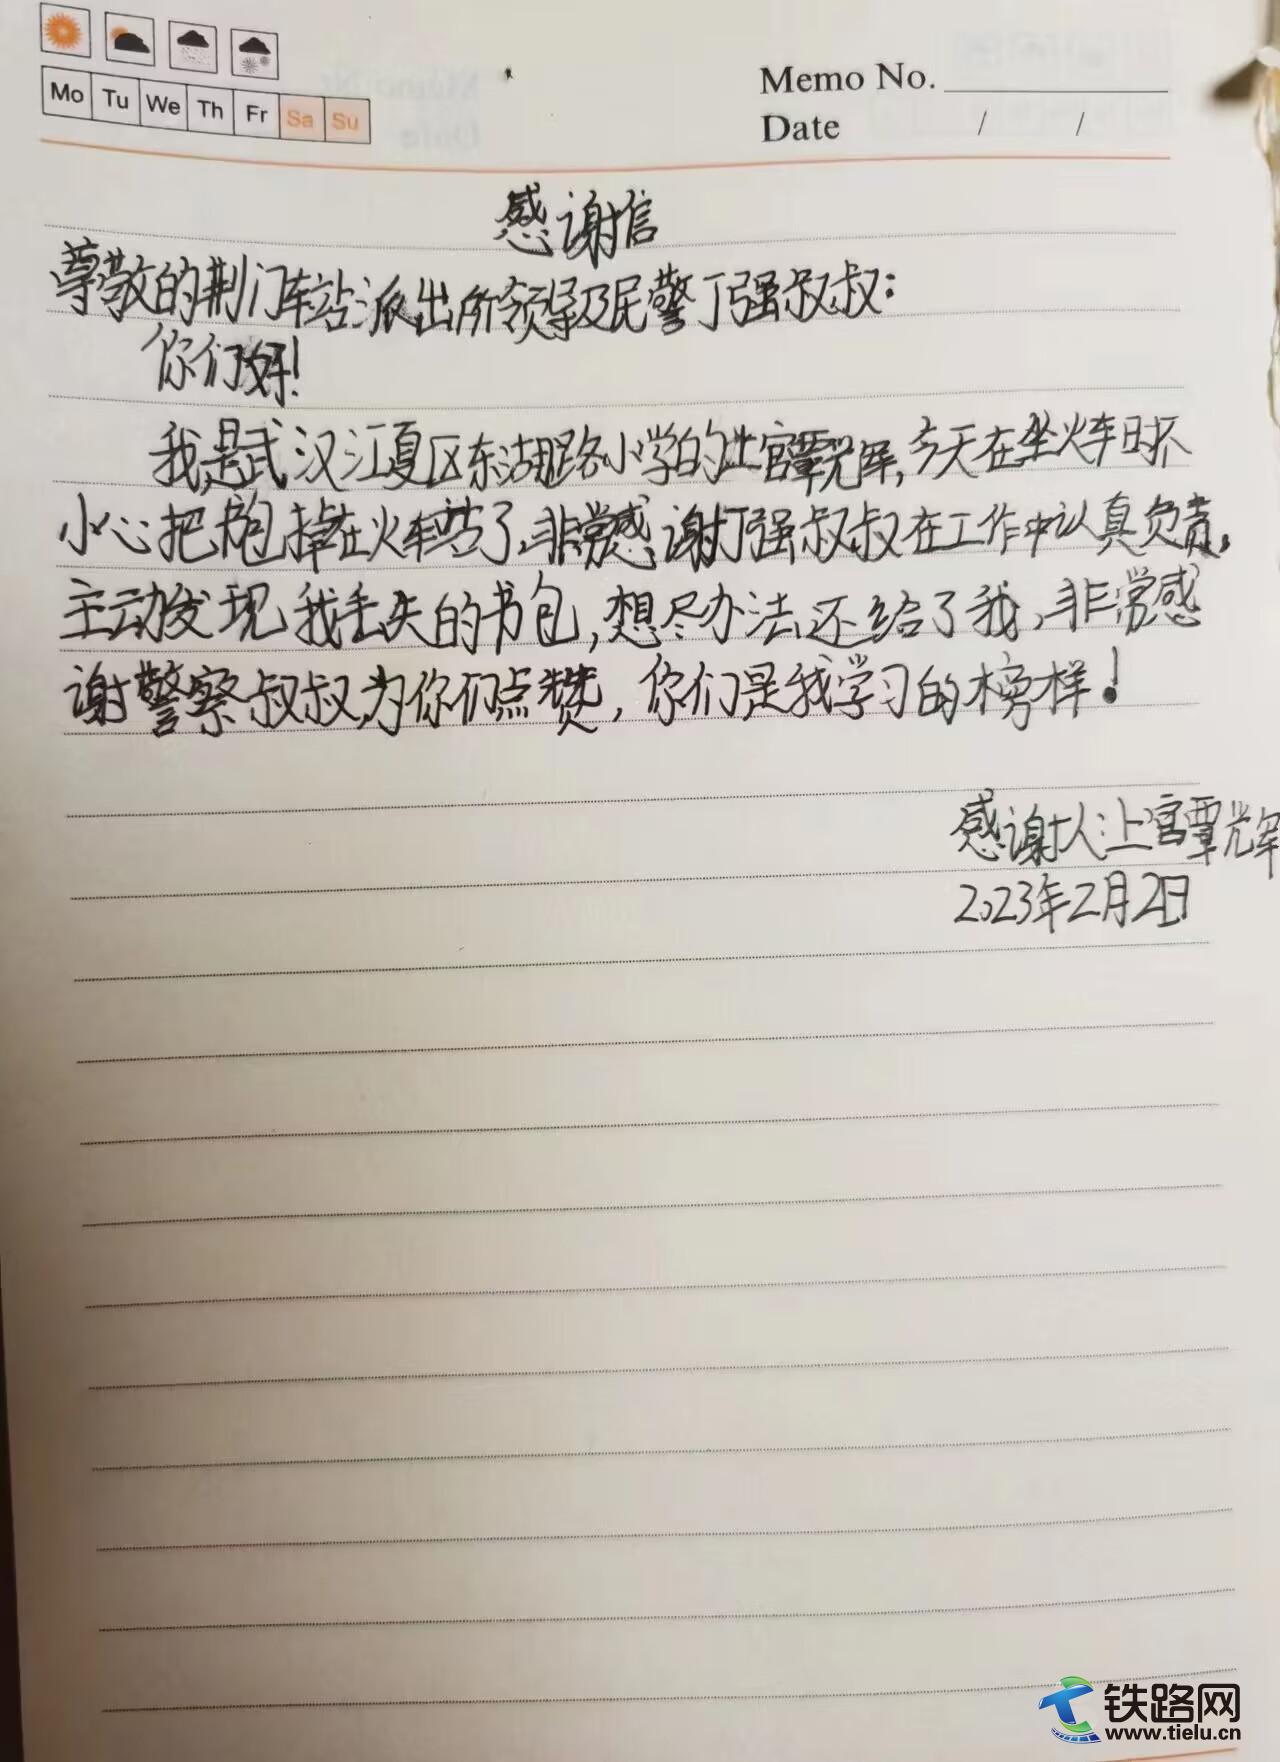 Mo Tu We Th Fr Sa Su
Memo No.
Date / /
感谢信
尊敬的荆门车站派出所领导及民警丁强叔叔：
你们好！
我是武汉江夏区东湖路小学的上官覃光辉，今天在坐火车时不
小心把书包掉在火车站了，非常感谢丁强叔叔在工作中认真负责，
主动发现我丢失的书包，想尽办法还给了我，非常感
谢警察叔叔，为你们点赞，你们是我学习的榜样！
感谢人：上官覃光辉
2023年2月2日
铁路网
www.tielu.cn